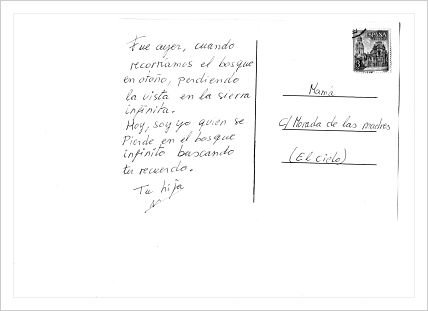 Fue ayer, cuando
recorriamos el bosque
en otoño, perdiendo
la vista en la sierra
infinita.
Hoy, soy yo quien se
Pierde en el bosque
infinito buscando
tu recuerdo.
Tu hija
N
ESPAÑA
Mamá
c/ Morada de las madres
(El cielo)